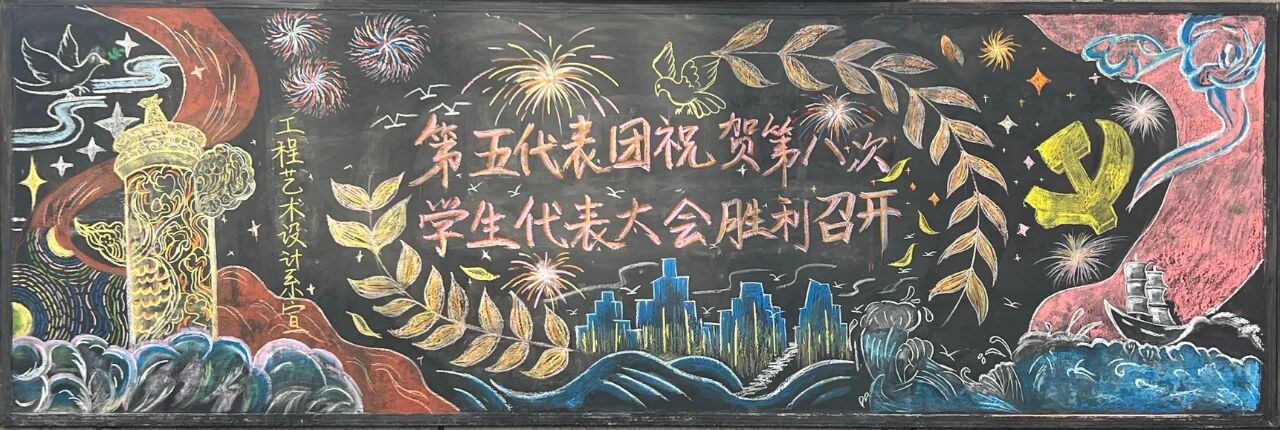 第五代表团祝贺第八次
学生代表大会胜利召开
工程艺术设计系宣